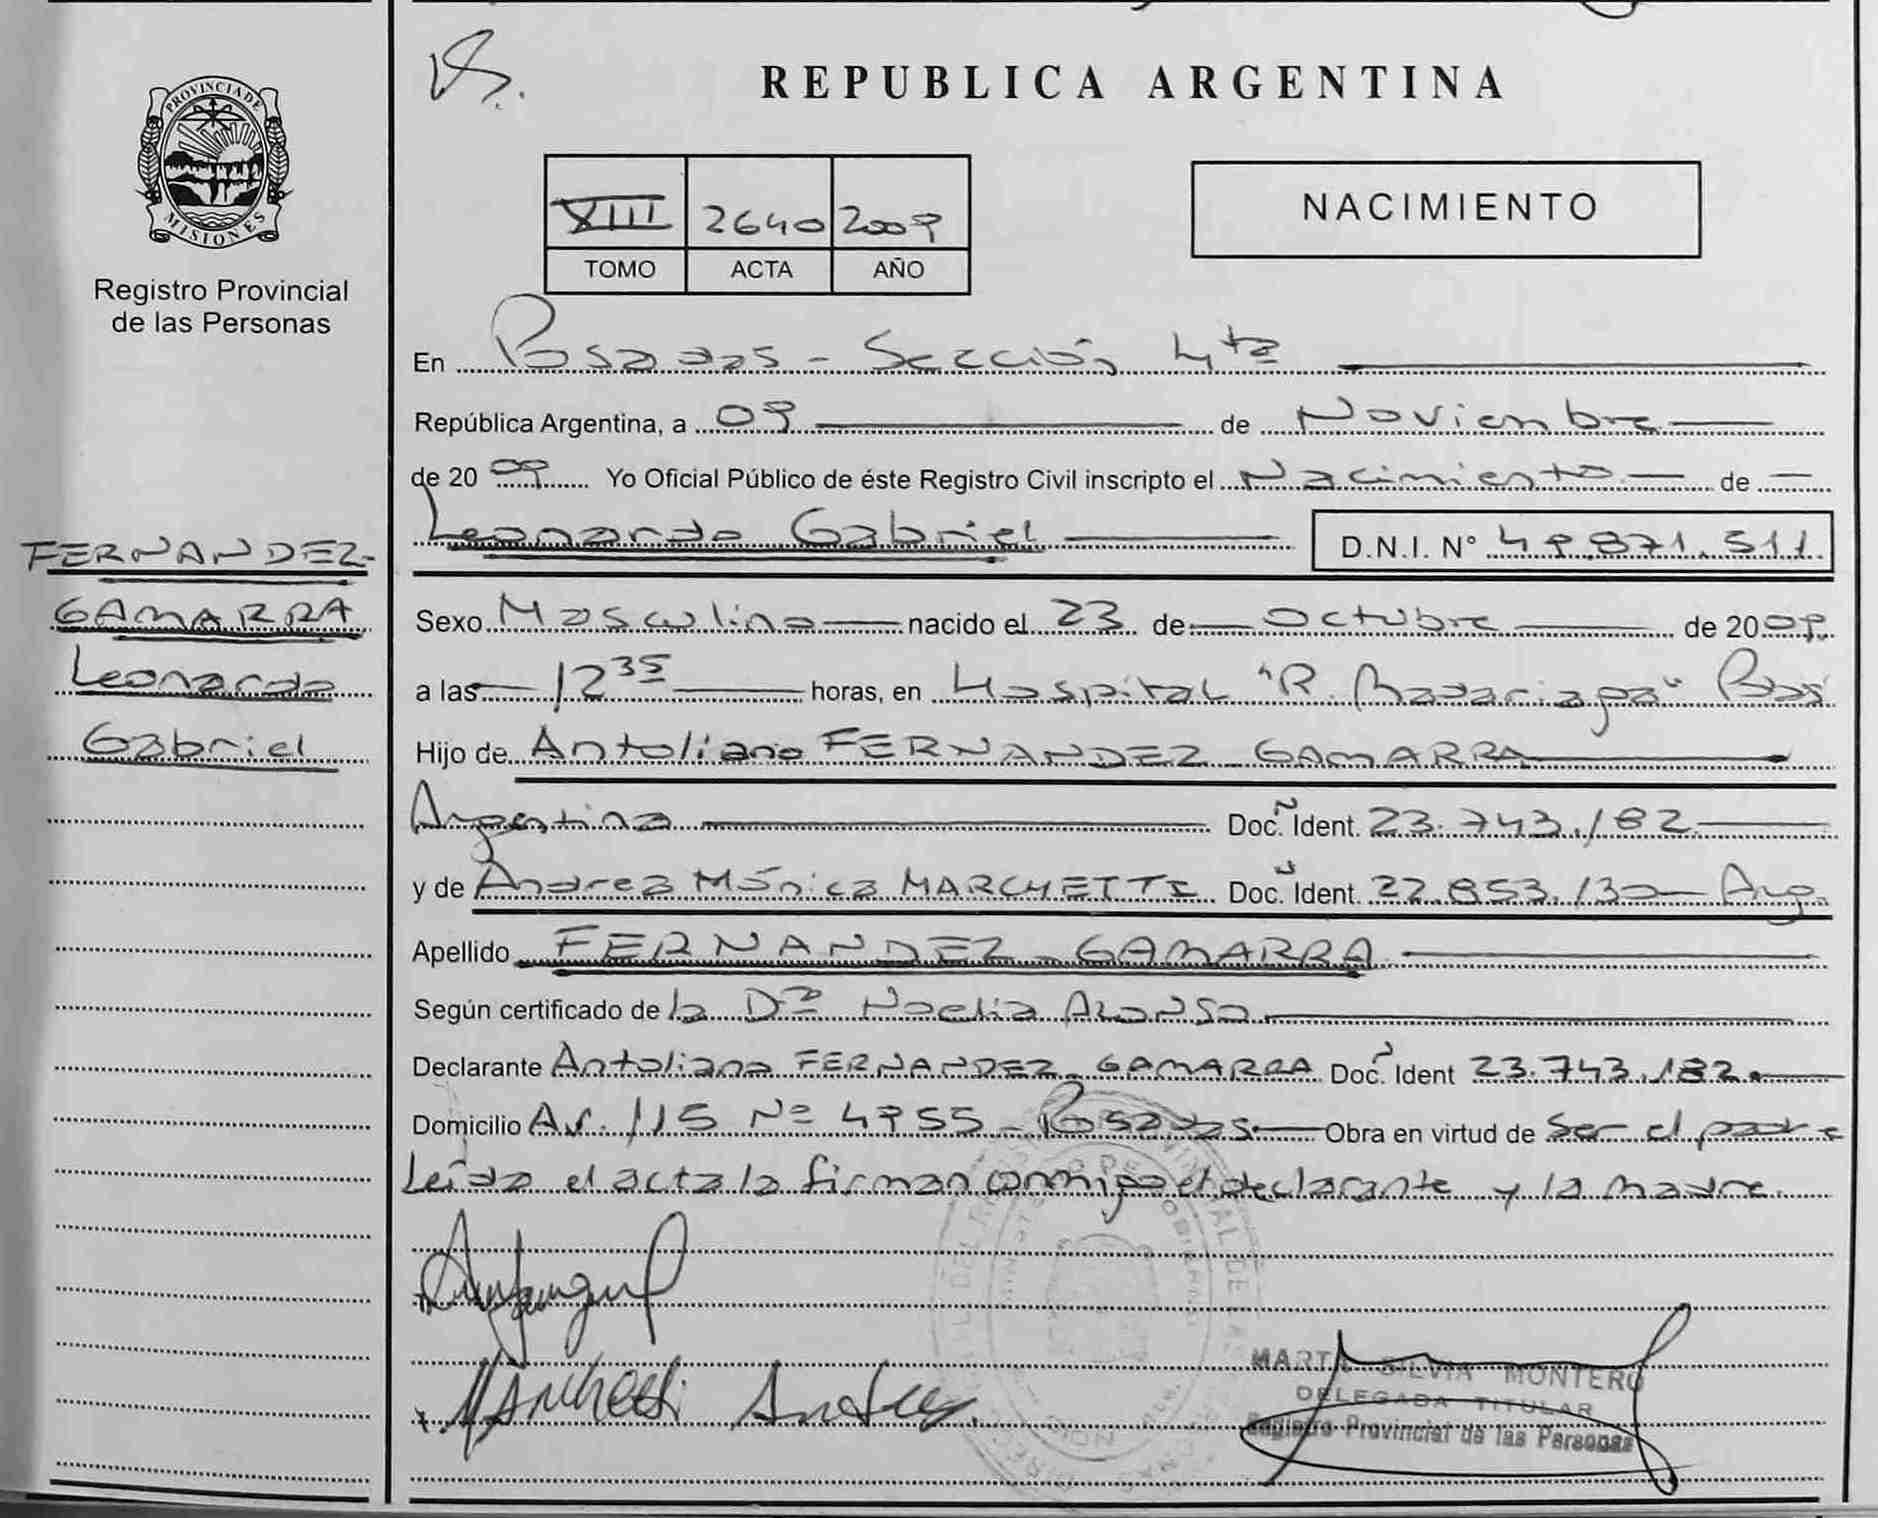 PROVINCIA DE
MISIONES
Registro Provincial
de las Personas
FERNANDEZ-
GAMARRA
Leonardo
Gabriel
REPUBLICA ARGENTINA
XIII 2640 2009
TOMO ACTA AÑO
NACIMIENTO
En Posadas - Sección 4ta
República Argentina, a 09 de Noviembre
de 2009 Yo Oficial Público de éste Registro Civil inscripto el Nacimiento de
Leonardo Gabriel D.N.I. N° 49.871.511.
Sexo Masculino nacido el 23 de Octubre de 2009.
a las 12 35 horas, en Hospital "R. Madariaga" Pdas
Hijo de Antoliano FERNANDEZ GAMARRA
Argentina Doc. Ident. 23.743.182
y de Andrea Mónica MARCHETTI Doc. Ident. 22.853.130 Arg.
Apellido FERNANDEZ - GAMARRA
Según certificado de la Dra Noelia Alonso
Declarante Antoliano FERNANDEZ - GAMARRA Doc. Ident 23.743.182
Domicilio Av. 115 Nº 4955 - Posadas Obra en virtud de ser el padre
Leída el acta la firman conmigo el declarante y la madre.
Marchetti Andrea
MARTA SILVIA MONTERO
DELEGADA TITULAR
Registro Provincial de las Personas